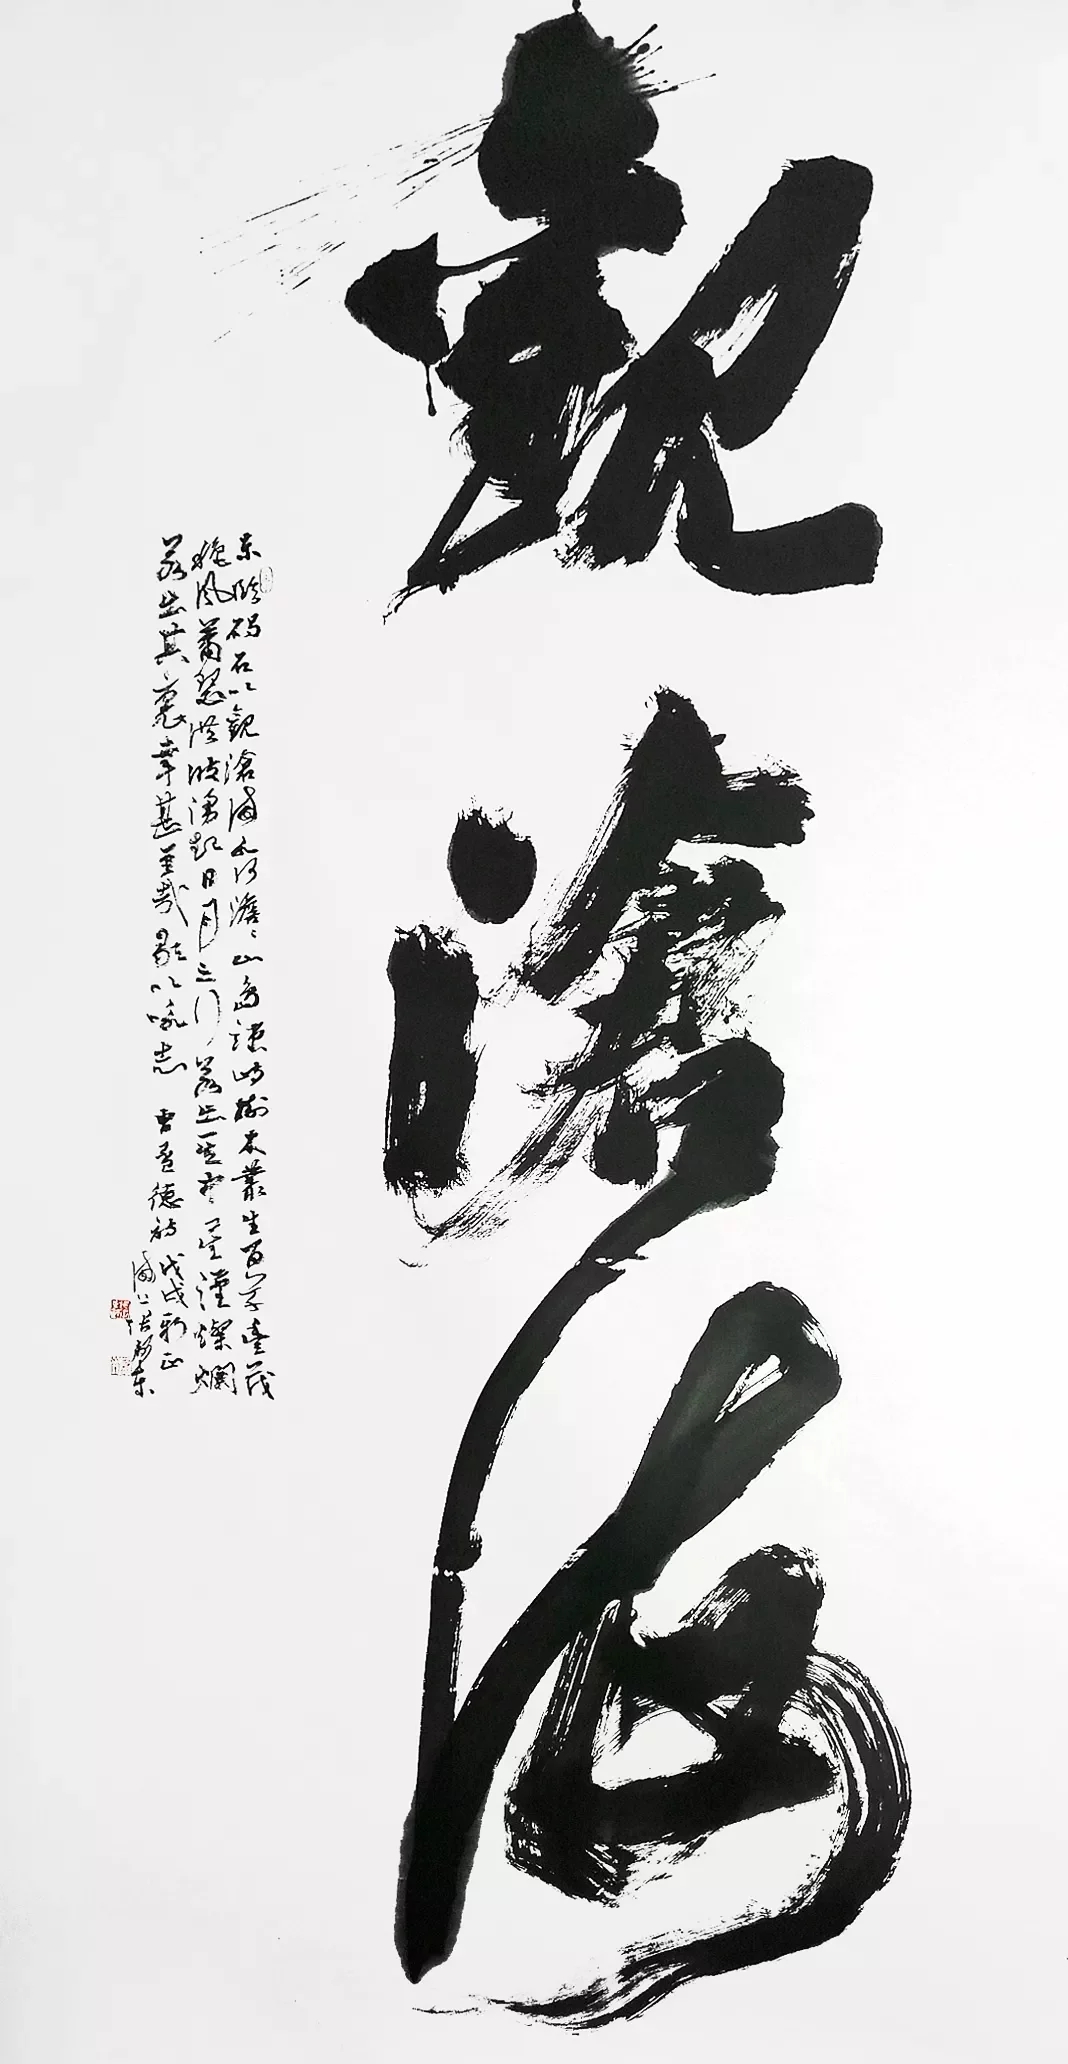 觀滄海
東臨碣石以觀滄海水何澹々山島竦峙樹木叢生百草豐茂
穐風蕭瑟洪波湧起日月之行若出其中星漢燦爛
若出其裏幸甚至哉歌以咏志 曹孟德詩 戊戌新正
海上張東